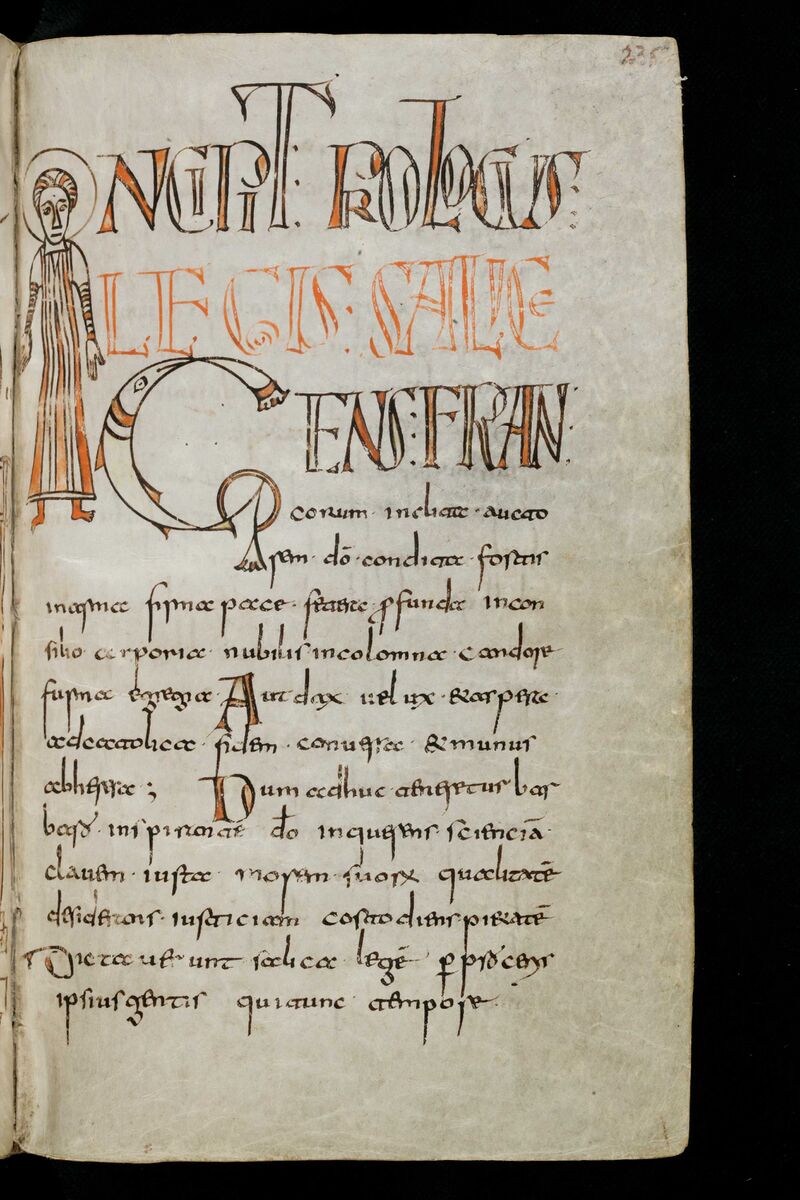 235
INCIPIT PROLOGUS
LEGIS SALICE
GENS FRAN
corum inclita aucto
Rem dō condita fortis
in arma firma pace fetare ꝓfunda incon
silio corporia nubilis incolomna candore
furma egregia Audax uelux & aspera
ad catolica fidem conuersa & munus
ab heresa ; Dum adhuc teneretur bar
baro inspirante dō inquerens scienciā
clauem iusta morem suorꝝ qualitatē
desiderans iusticiam costodiens pietatē
Dictauerunt salica legē ꝑ proceris
ipsius gentis qui tunc tempore